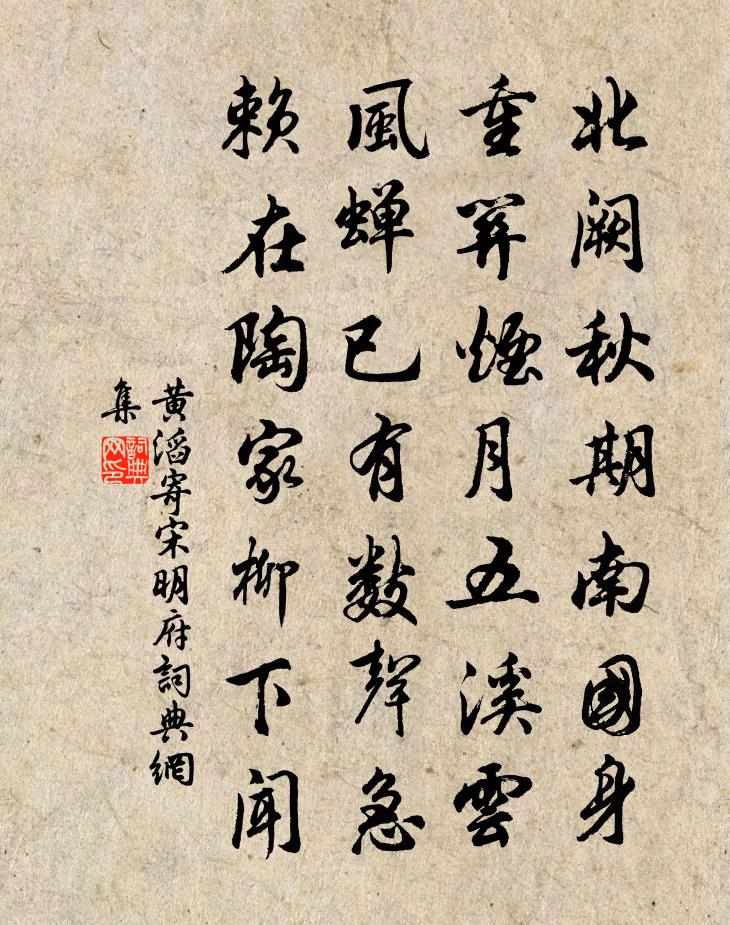 北闕秋期南國身
重關煙月五溪雲
風蟬已有數聲急
賴在陶家柳下聞
黃滔寄宋明府詞典網
集
詞典網印